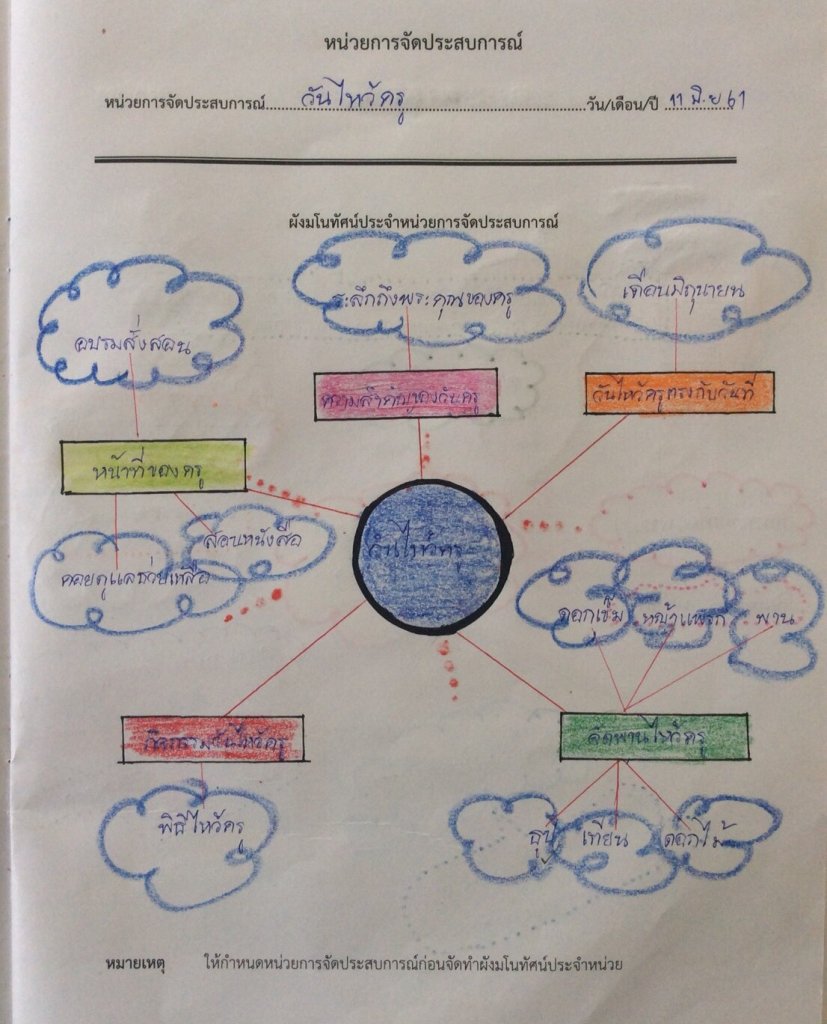 หน่วยการจัดประสบการณ์
หน่วยการจัดประสบการณ์ วันไหว้ครู วัน/เดือน/ปี 11 มิ.ย 61
ผังมโนทัศน์ประจำหน่วยการจัดประสบการณ์
อบรมสั่งสอน
ระลึกถึงพระคุณของครู
เดือนมิถุนายน
ความสำคัญของวันครู
วันไหว้ครูตรงกับวันที่
หน้าที่ของครู
สอนหนังสือ
คอยดูแลช่วยเหลือ
วันไหว้ครู
ดอกเข็ม
หญ้าแพรก
พาน
กิจกรรมวันไหว้ครู
จัดพานไหว้ครู
พิธีไหว้ครู
ธูป
เทียน
ดอกไม้
หมายเหตุ ให้กำหนดหน่วยการจัดประสบการณ์ก่อนจัดทำผังมโนทัศน์ประจำหน่วย